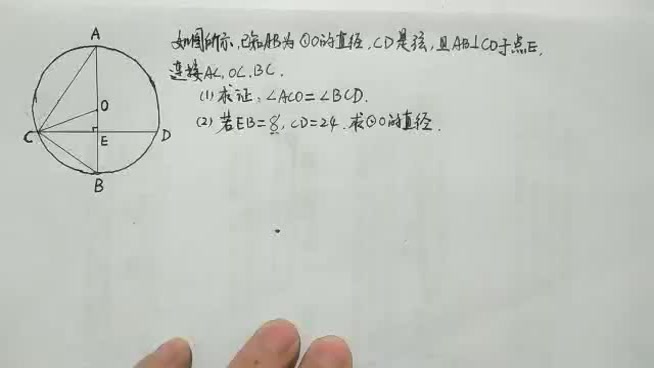 如图所示,已知AB为⊙O的直径,CD是弦,且AB⊥CD于点E,
连接AC,OC,BC.
(1) 求证:∠ACO=∠BCD.
(2) 若EB=8,CD=24.求⊙O的直径.
A
O
C
E
D
B